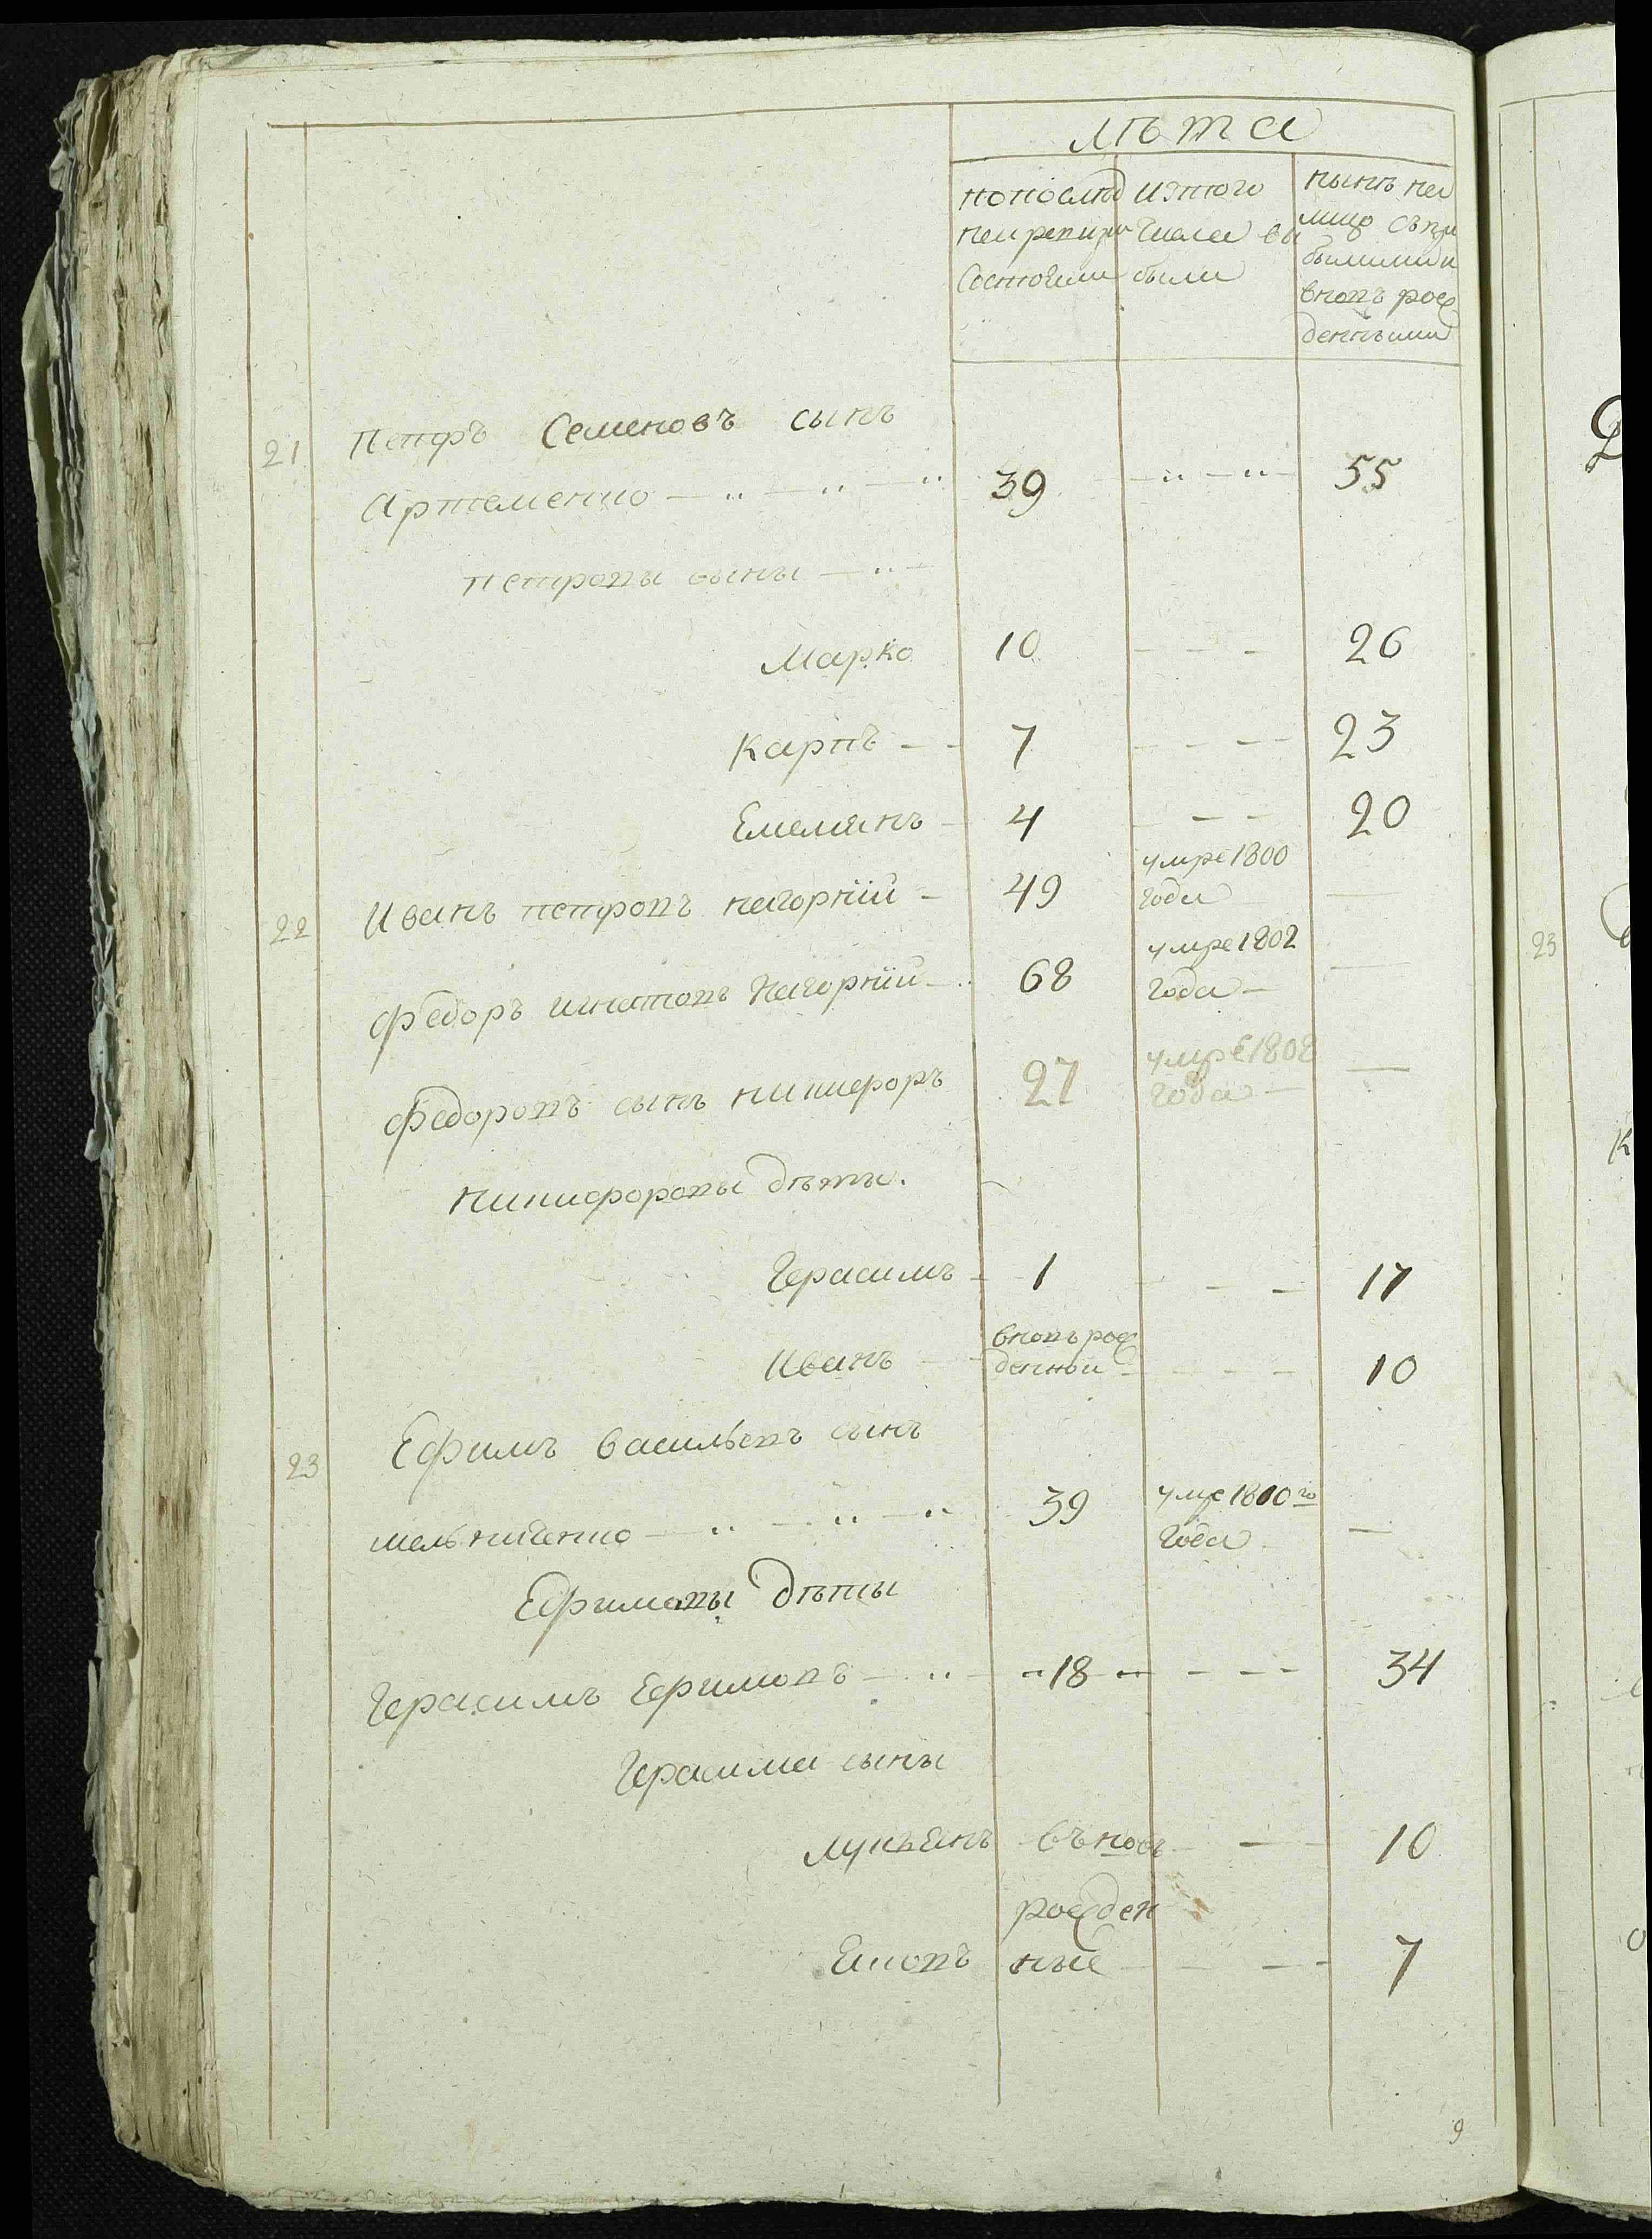 лѣта
попослѣд
ней ревизіи
состояли
изтого
числа вы
были
нынѣ на
лицо съпри
былыми и
вновъ рож
деннымы
21 Петръ Семеновъ сынъ
Артеменко 39 55
Петровы сыны
Марко 10 26
Карпъ 7 23
Емелянъ 4 20
22 Иванъ Петровъ Нагорній 49 умре 1800
года
Федоръ Игнатовъ Нагорній 68 умре 1802
года
Федоровъ сынъ Никифоръ 27 умре 1808
года
Никифоровы дѣты.
Герасимъ 1 17
Иванъ вновъ рож
денной 10
23 Ефимъ Васильевъ сынъ
Мельниченко 39 умре 1810го
года
Ефимовы дѣты
Герасимъ Ефимовъ 18 34
Герасима сыны
Лукьянъ въновъ 10
рожден
Яковъ ные 7
9
23